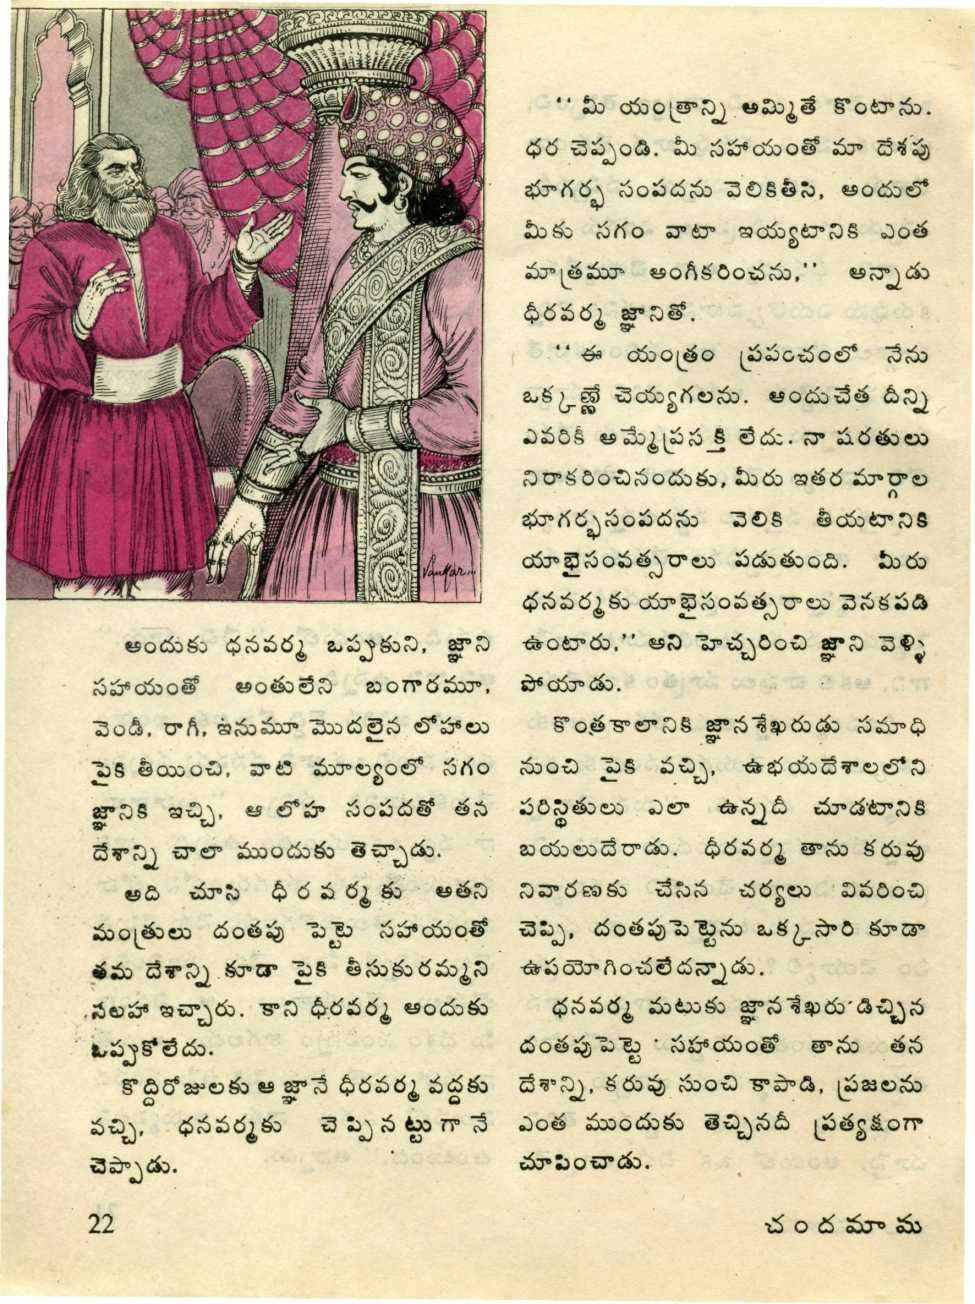 అందుకు ధనవర్మ ఒప్పుకుని, జ్ఞాని
సహాయంతో అంతులేని బంగారమూ,
వెండీ, రాగీ, ఇనుమూ మొదలైన లోహాలు
పైకి తీయించి, వాటి మూల్యంలో సగం
జ్ఞానికి ఇచ్చి, ఆ లోహ సంపదతో తన
దేశాన్ని చాలా ముందుకు తెచ్చాడు.
అది చూసి ధీరవర్మకు అతని
మంత్రులు దంతపు పెట్టె సహాయంతో
తమ దేశాన్ని కూడా పైకి తీసుకురమ్మని
సలహా ఇచ్చారు. కాని ధీరవర్మ అందుకు
ఒప్పుకోలేదు.
కొద్దిరోజులకు ఆ జ్ఞానే ధీరవర్మ వద్దకు
వచ్చి, ధనవర్మకు చెప్పినట్టుగానే
చెప్పాడు.
‘‘మీ యంత్రాన్ని అమ్మితే కొంటాను.
ధర చెప్పండి. మీ సహాయంతో మా దేశపు
భూగర్భ సంపదను వెలికితీసి, అందులో
మీకు సగం వాటా ఇయ్యటానికి ఎంత
మాత్రమూ అంగీకరించను,’’ అన్నాడు
ధీరవర్మ జ్ఞానితో.
‘‘ఈ యంత్రం ప్రపంచంలో నేను
ఒక్కణ్ణే చెయ్యగలను. అందుచేత దీన్ని
ఎవరికీ అమ్మేప్రసక్తి లేదు. నా షరతులు
నిరాకరించినందుకు, మీరు ఇతర మార్గాల
భూగర్భసంపదను వెలికి తీయటానికి
యాభైసంవత్సరాలు పడుతుంది. మీరు
ధనవర్మకు యాభైసంవత్సరాలు వెనకపడి
ఉంటారు,’’ అని హెచ్చరించి జ్ఞాని వెళ్ళి
పోయాడు.
కొంతకాలానికి జ్ఞానశేఖరుడు సమాధి
నుంచి పైకి వచ్చి, ఉభయదేశాలలోని
పరిస్థితులు ఎలా ఉన్నదీ చూడటానికి
బయలుదేరాడు. ధీరవర్మ తాను కరువు
నివారణకు చేసిన చర్యలు వివరించి
చెప్పి, దంతపుపెట్టెను ఒక్కసారి కూడా
ఉపయోగించలేదన్నాడు.
ధనవర్మ మటుకు జ్ఞానశేఖరుడిచ్చిన
దంతపుపెట్టె సహాయంతో తాను తన
దేశాన్ని, కరువు నుంచి కాపాడి, ప్రజలను
ఎంత ముందుకు తెచ్చినదీ ప్రత్యక్షంగా
చూపించాడు.
22
చందమామ